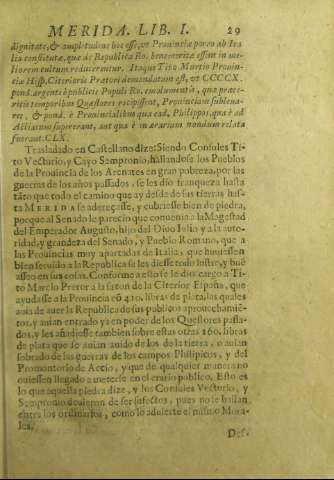 MERIDA. LIB. I. 29
dignitate, & amplitudine hoc esse, ut Provinciæ porro ab Ita
lia constitutæ, quæ de Republica Ro. benemeritæ essent in me
liorem cultum reducerentur. Itaque Tito Martio Provin-
ciæ Hisp. Citerioris Pretori demandatum est, ut CCCCX.
pond. argenti è publicis Populi Ro. emolumentis, quæ præte-
ritis temporibus Quæstores recipissent, Provinciam sublena-
ret, & pond. è Provincialibus quæ ead, Philippos, quæ è ad
Actiacum superarent, aut quæ in ærarium nondum relata
fuerant. CLX.
Trasladado en Castellano dize: Siendo Consules Ti-
to Vecturio, y Cayo Sempronio, hallandose los Pueblos
de la Provincia de los Arenates en gran pobreza, por las
guerras de los años passados, se les dio franqueza hasta
tãto que todo el camino que ay desde de sus tierras has-
ta MERIDA se adereçasse, y cubriesse bien de piedra,
porque al Senado le parecio que convenia a la Magestad
del Emperador Augusto, hijo del Divo Iulio y a la auto-
ridad, y grandeza del Senado, y Pueblo Romano, que a
las Provincias muy apartadas de Italia, que huviessen
bien servido a la Republica se les diesse todo lustre, y bol-
viessen en sus cosas. Conforme a esto se le dio cargo a Ti-
to Marcio Pretor a la sazon de la Citerior España, que
ayudasse a la Provincia cõ 410. libras de plata, las quales
avia de aver la Republica de sus publicos aprovechamiẽ-
tos, y avian entrado ya en poder de los Questores passa-
dos, y les añadiesse tambien sobre estas otras 160. libras
de plata que se avian avido de los de la tierra, o avian
sobrado de las guerras de los campos Philipicos, y del
Promontorio de Accio, y que de qualquier manera no
oviessen llegado a meterse en el erario publico. Esto es
lo que aquesta piedra dize, y los Consules Vecturio, y
Sempronio devieron de ser sufectos, pues no se hallan
entre los ordinarios, como lo advierte el mismo Mora-
les.
Def-